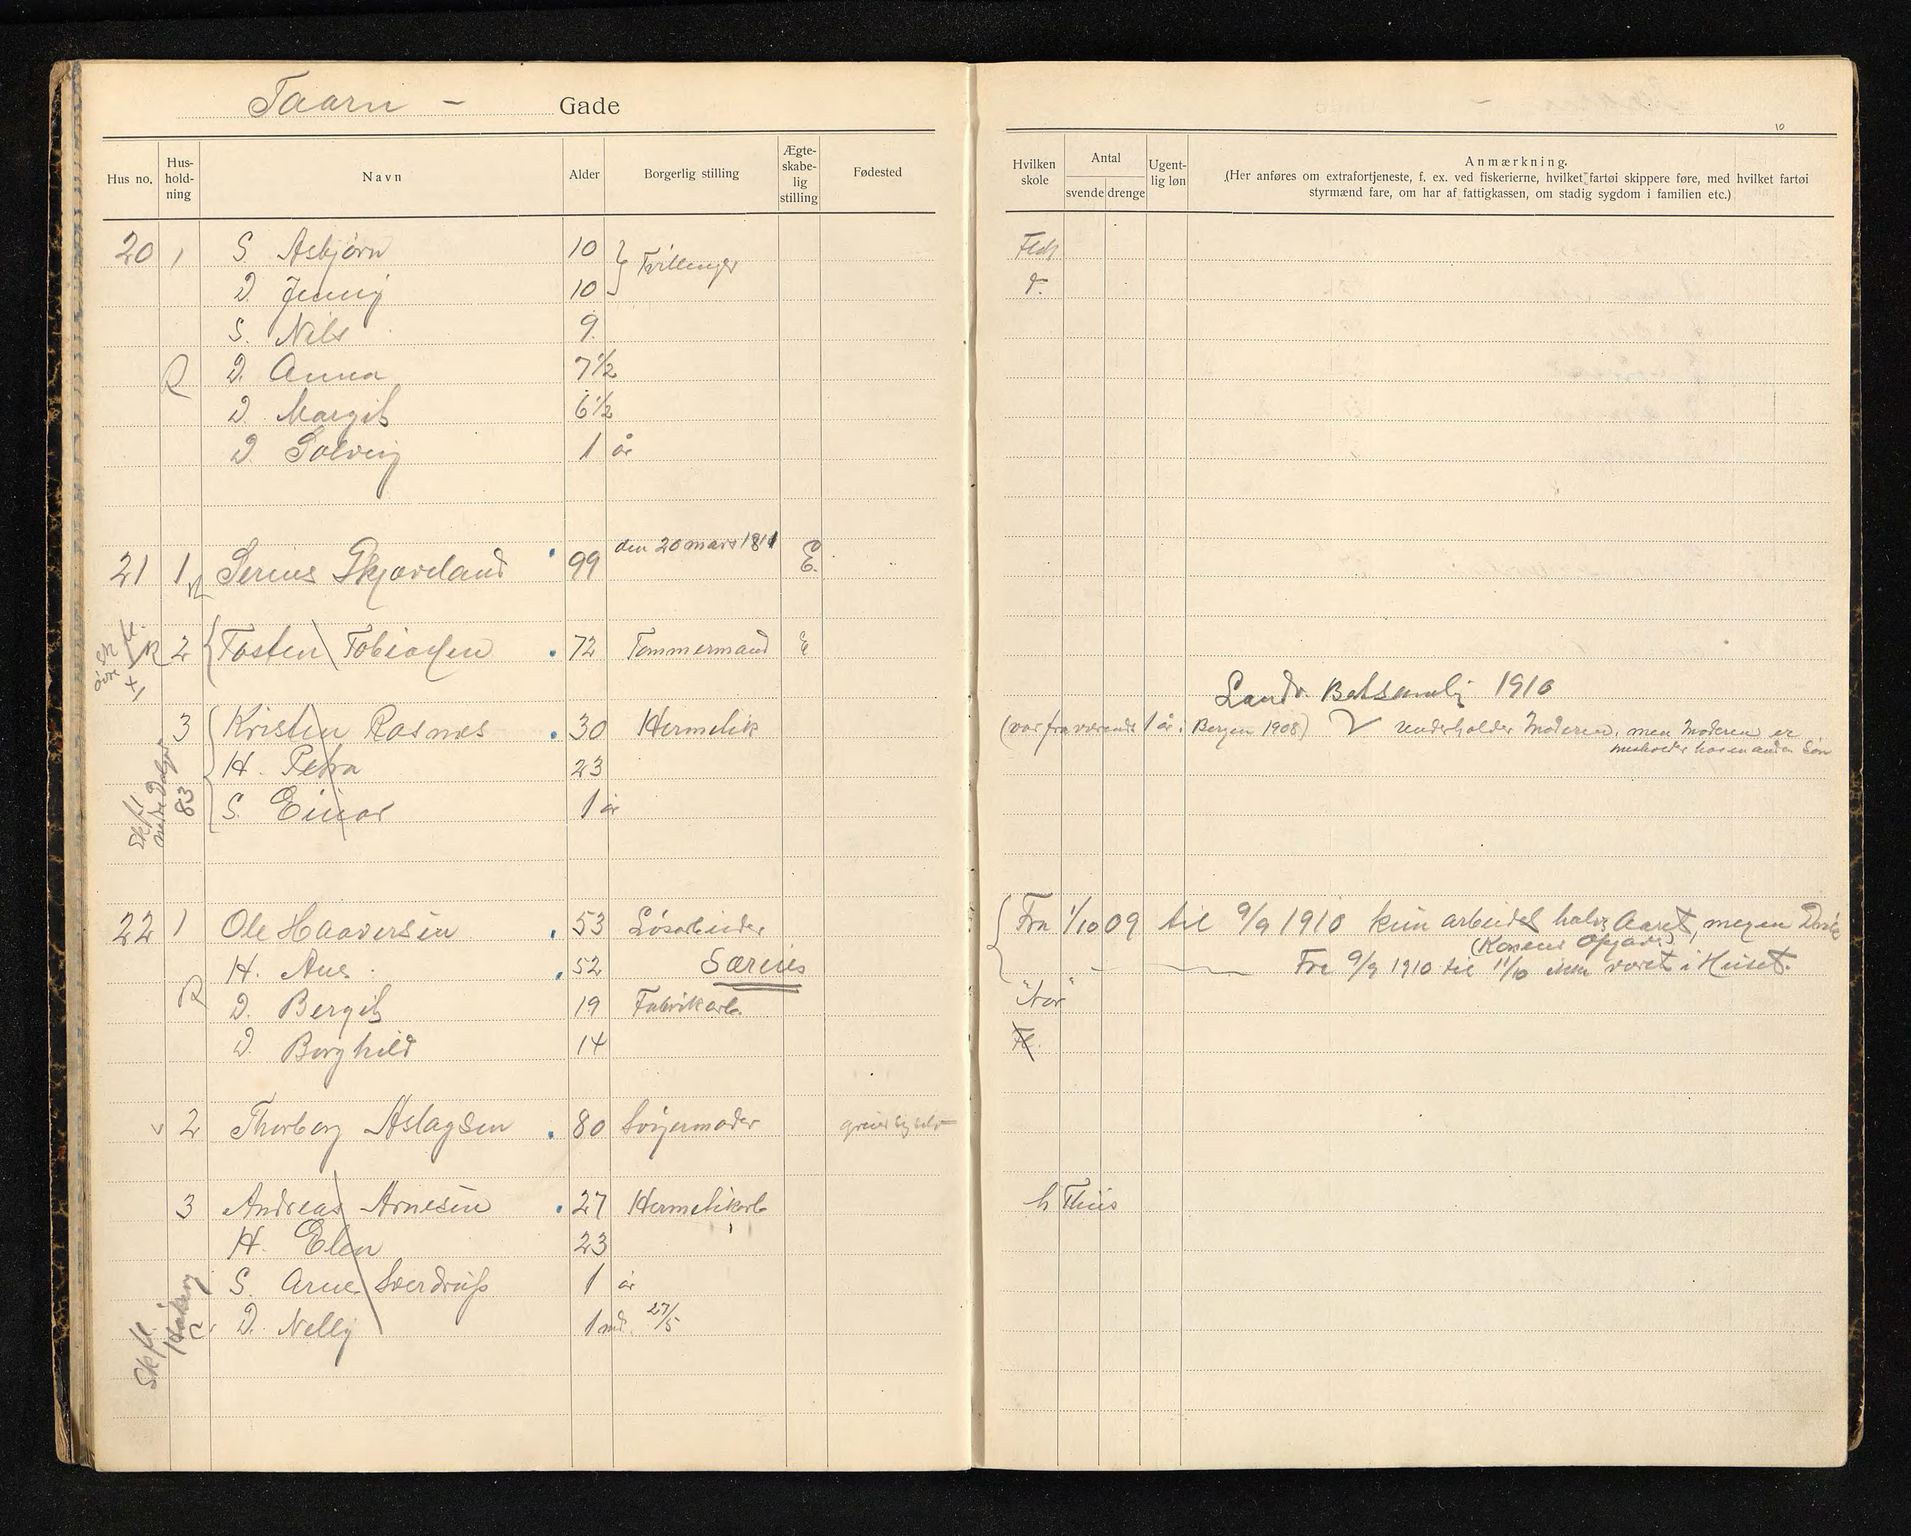 Taarn - Gade
Hus no. Hus-hold-ning Navn Alder Borgerlig stilling Ægte-skabe-lig stilling Fødested
20 1 S Asbjørn 10 } Tvillinger
D. Jenny 10
S. Nils 9
R D. Anna 7 1/2
D. Margit 6 1/2
D. Solveig 1 år
21 1 Serius Skjæveland 99 den 20 mars 1811 E.
R 2 Tosten Tobiassen 72 Tømmermand E
3 Kristen Rasmus 30 Hermetik
H. Petra 23
S. Einar 1 år
Skfl nedre 83
22 1 Ole Haaversen 53 Løsarbeider
H. Ane 52 Særens
R D. Bergit 19 Fabrikarb.
D. Borghild 14
2 Thorborg Aslagsen 80 Svigermoder
3 Andreas Arnesen 27 Hermetikarb
H. Elen 23
S. Arne Sverdrup 1 år
D. Nelly 1 md. 27/5
Skfl
10
Hvilken skole Antal svende drenge Ugent-lig løn Anmærkning.
(Her anføres om extrafortjeneste, f. ex. ved fiskerierne, hvilket fartøi skippere føre, med hvilket fartøi
styrmænd fare, om har af fattigkassen, om stadig sygdom i familien etc.)
d.
1910
(var fraværende 1 år i Bergen 1908) underholder Moderen, men Moderen er
hos en anden Søn
Fra 1/10 09 til 9/9 1910 kun arbeidet halve Aaret, megen
(Konens Opgav)
" Fra 9/9 1910 til 11/10 ikke været i Huset.
"Nor"
Fl.
h Thiis